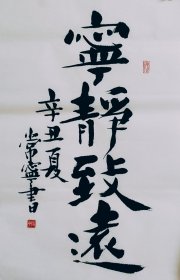 寧靜致遠
辛丑夏
常寧書